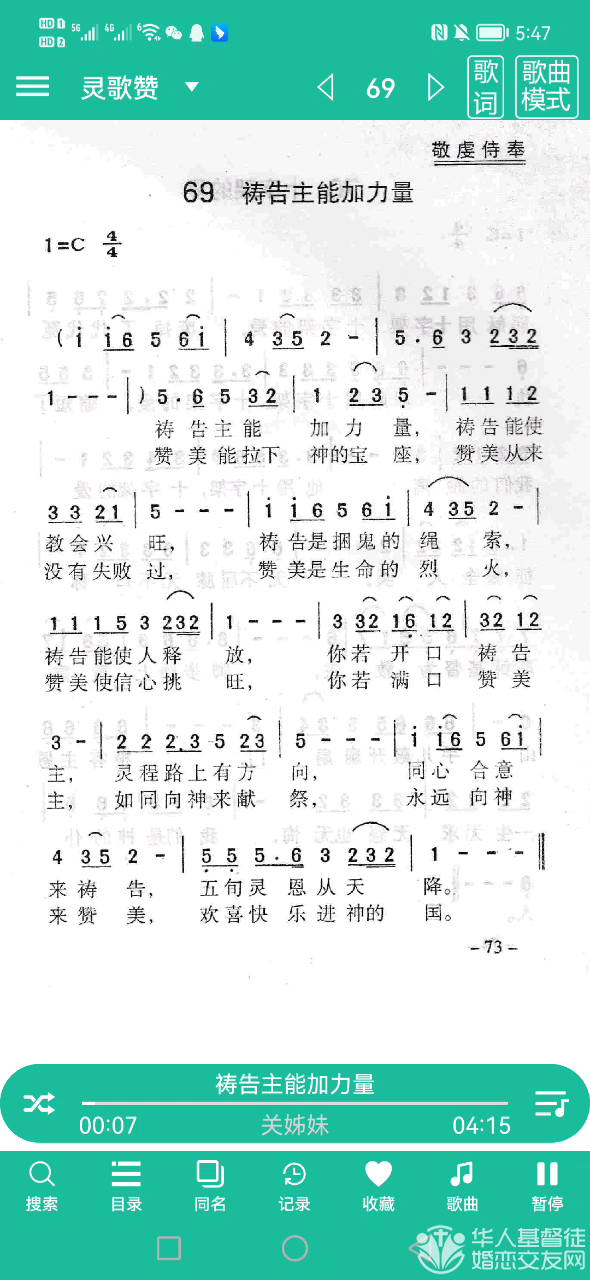 HD 1 5G 4G 6 5:47
HD 2
灵歌赞 69 歌词 歌曲模式
敬虔侍奉
69 祷告主能加力量
1=C 4/4
( i i6 5 6i | 4 35 2 - | 5.6 3 232 |
1 - - - | ) 5.6 5 32 | 1 23 5 - | 11 12
祷告主能 加力量, 祷告能使
赞美能拉下 神的宝座, 赞美从来
33 21 | 5 - - - | i i6 5 6i | 4 35 2 - |
教会兴旺, 祷告是捆鬼的绳索,
没有失败过, 赞美是生命的烈火,
11 15 3 232 | 1 - - - | 3 32 16 12 | 32 12
祷告能使人释放, 你若开口祷告
赞美使信心挑旺, 你若满口赞美
3 - | 22 2.3 5 23 | 5 - - - | i i6 5 6i |
主, 灵程路上有方向, 同心合意
主, 如同向神来献祭, 永远向神
4 35 2 - | 55 5.6 3 232 | 1 - - - ‖
来祷告, 五旬灵恩从天降。
来赞美, 欢喜快乐进神的国。
-73-
祷告主能加力量
00:07 关姊妹 04:15
搜索 目录 同名 记录 收藏 歌曲 暂停
华人基督徒
婚恋交友网